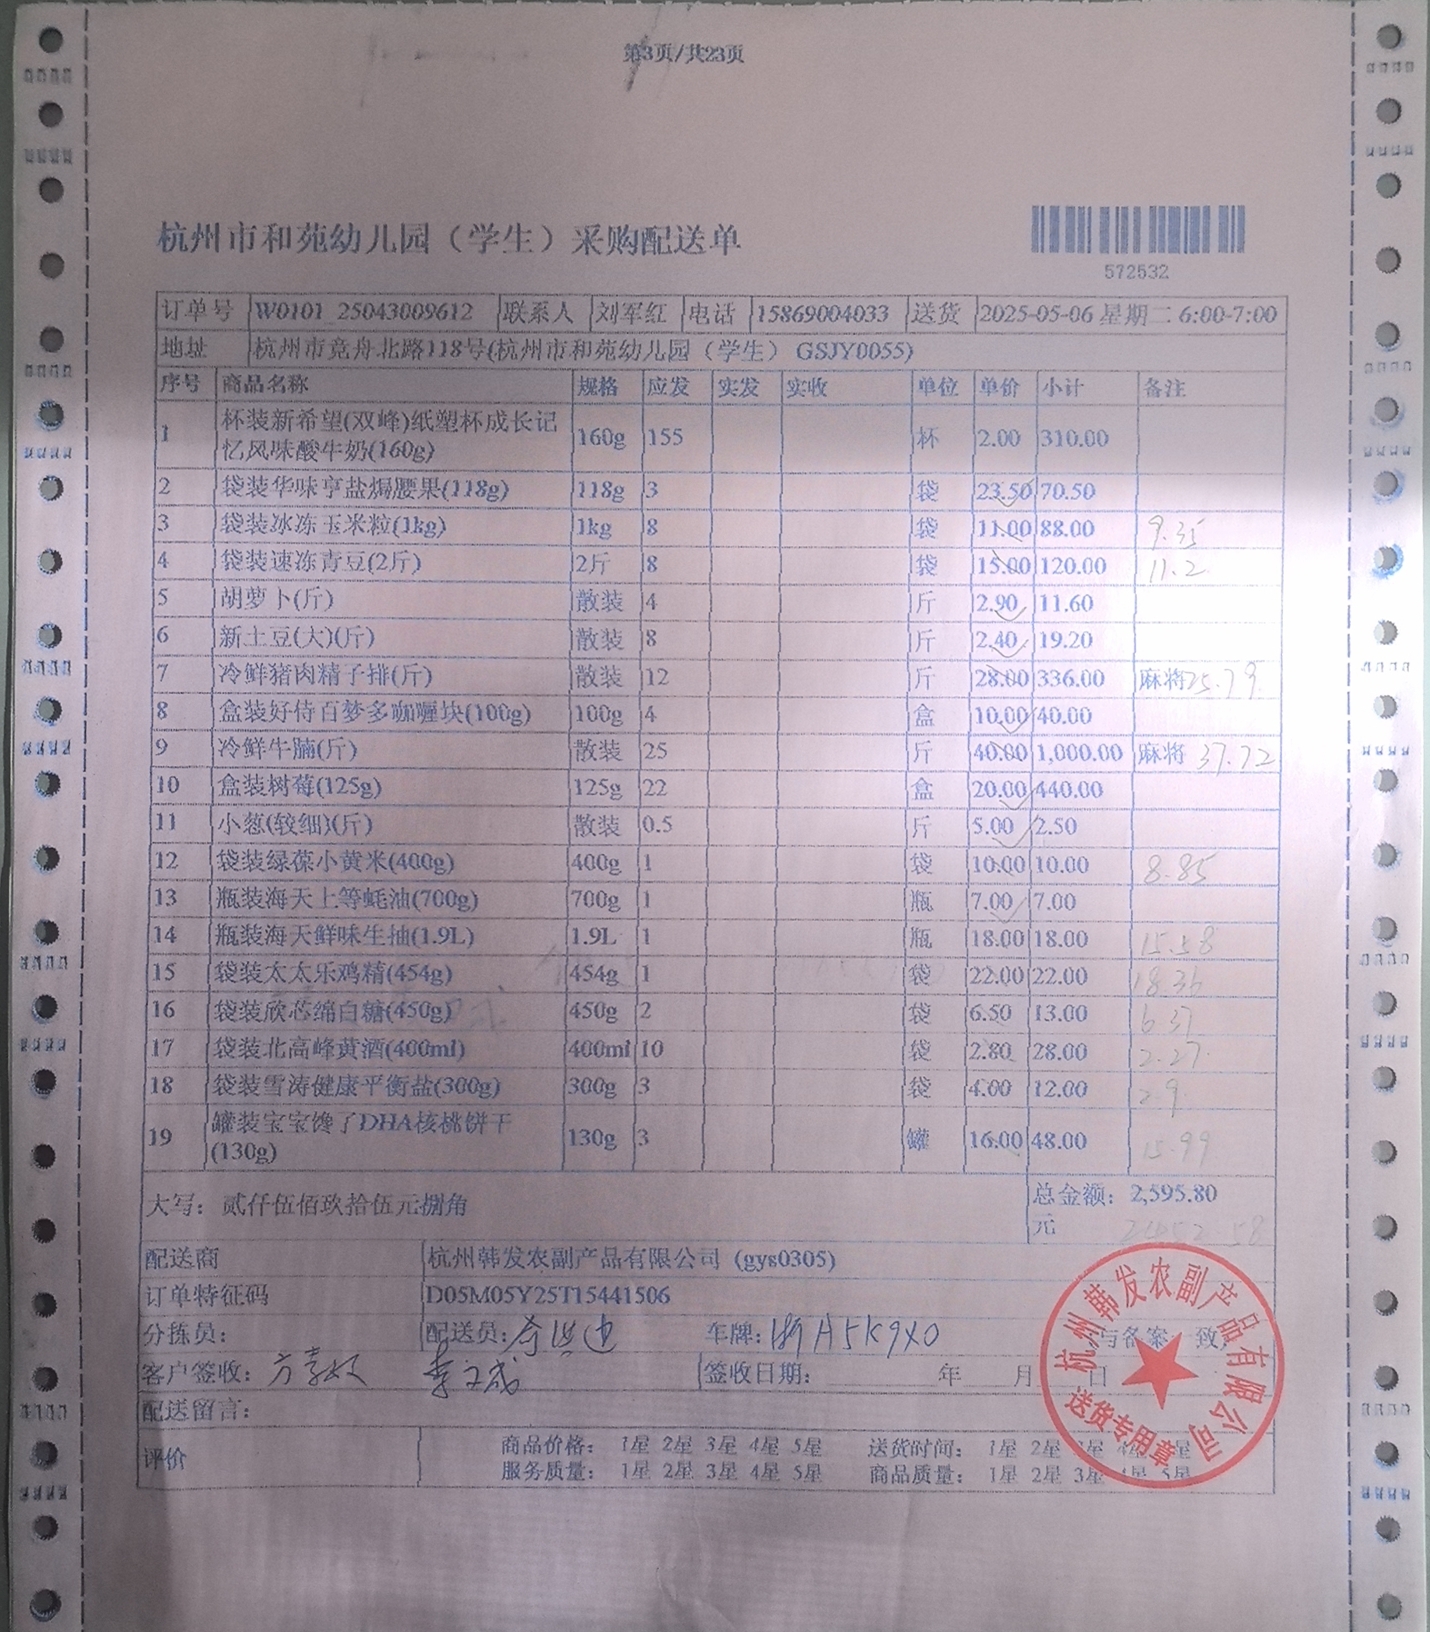 第3页/共23页
杭州市和苑幼儿园（学生）采购配送单
572532
订单号 W0101_25043009612 联系人 刘军红 电话 15869004033 送货 2025-05-06 星期二 6:00-7:00
地址 杭州市竞舟北路118号(杭州市和苑幼儿园（学生） GSJY0055)
序号 商品名称 规格 应发 实发 实收 单位 单价 小计 备注
1 杯装新希望(双峰)纸塑杯成长记忆风味酸牛奶(160g) 160g 155 杯 2.00 310.00
2 袋装华味亨盐焗腰果(118g) 118g 3 袋 23.50 70.50
3 袋装冰冻玉米粒(1kg) 1kg 8 袋 11.00 88.00 9.35
4 袋装速冻青豆(2斤) 2斤 8 袋 15.00 120.00 11.2
5 胡萝卜(斤) 散装 4 斤 2.90 11.60
6 新土豆(大)(斤) 散装 8 斤 2.40 19.20
7 冷鲜猪肉精子排(斤) 散装 12 斤 28.00 336.00 麻将 25.79
8 盒装好侍百梦多咖喱块(100g) 100g 4 盒 10.00 40.00
9 冷鲜牛腩(斤) 散装 25 斤 40.00 1,000.00 麻将 37.72
10 盒装树莓(125g) 125g 22 盒 20.00 440.00
11 小葱(较细)(斤) 散装 0.5 斤 5.00 2.50
12 袋装绿葆小黄米(400g) 400g 1 袋 10.00 10.00 8.85
13 瓶装海天上等蚝油(700g) 700g 1 瓶 7.00 7.00
14 瓶装海天鲜味生抽(1.9L) 1.9L 1 瓶 18.00 18.00 15.58
15 袋装太太乐鸡精(454g) 454g 1 袋 22.00 22.00 18.36
16 袋装欣芯绵白糖(450g) 450g 2 袋 6.50 13.00 6.37
17 袋装北高峰黄酒(400ml) 400ml 10 袋 2.80 28.00 2.27
18 袋装雪涛健康平衡盐(300g) 300g 3 袋 4.00 12.00 2.9
19 罐装宝宝馋了DHA核桃饼干(130g) 130g 3 罐 16.00 48.00 15.99
大写：贰仟伍佰玖拾伍元捌角 总金额：2,595.80元
配送商 杭州韩发农副产品有限公司 (gys0305)
订单特征码 D05M05Y25T15441506
分拣员： 配送员： 车牌：浙A5K9X0 与备案一致
客户签收： 签收日期： 年 月 日
配送留言：
评价 商品价格： 1星 2星 3星 4星 5星 送货时间： 1星 2星 3星 4星 5星
服务质量： 1星 2星 3星 4星 5星 商品质量： 1星 2星 3星 4星 5星
杭州韩发农副产品有限公司
送货专用章